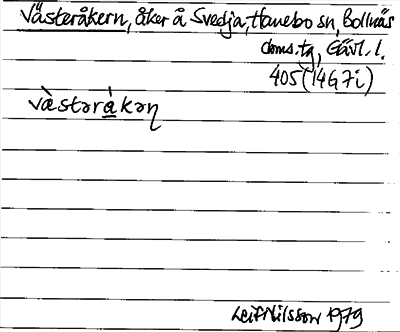 Västeråkern, åker å Svedja, Hanebo sn, Bollnäs
doms.tg, Gävl. l.
405 (14G7i)
vὰstərákəɳ
Leif Nilsson 1979